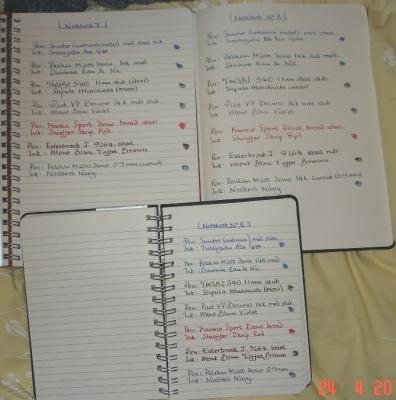 [Notebook 7.]
Pen: Senator (unknown model) med steel nib
Ink: Iroshizuku Asa Gao
Pen: Pelikan M200 Demo 14k med
Ink: Diamine Eau de Nil
Pen: TWSBI 540 1.1mm stub (steel)
Ink: Stipula Muschiato (Moss)
Pen: Pilot VP Decimo 14k med stub
Ink: Mont Blanc Violet
Pen: Kaweco Sport Demo broad steel
Ink: Sheaffer Skrip Red
Pen: Esterbrook J. 9264. steel.
Ink: Mont Blanc Toffee Brown
Pen: Pelikan M200 Demo 0.9mm cursive
Ink: Noodlers Navy.
[Notebook Nº 8.]
Pen: Senator (unknown model) med steel
Ink: Iroshizuku Asa Gao
Pen: Pelikan M200 Demo 14k nib med
Ink: Diamine Eau de Nil
Pen: TWSBI 540 1.1mm steel stub
Ink: Stipula Muschiato
Pen: Pilot VP Decimo 14k med stub
Ink: Mont Blanc Violet
Pen: Kaweco Sport Demo, broad steel
Ink: Sheaffer Skrip Red
Pen: Esterbrook J 9264 steel nib
Ink: Mont Blanc Toffee Brown
Pen: Pelikan M200 Demo 14k cursive (0.9mm)
Ink: Noodlers Navy
[Notebook Nº 6.]
Pen: Senator (unknown) med steel
Ink: Iroshizuku Asa Gao
Pen: Pelikan M200 Demo 14k med
Ink: Diamine Eau de Nil
Pen: TWSBI 540 1.1mm stub
Ink: Stipula Muschiato (Moss)
Pen: Pilot VP Decimo 14k med stub
Ink: Mont Blanc Violet
Pen: Kaweco Sport Demo broad
Ink: Sheaffer Skrip Red
Pen: Esterbrook J 9264 steel
Ink: Mont Blanc Toffee Brown
Pen: Pelikan M200 Demo 0.9mm
Ink: Noodlers Navy
24 4 20